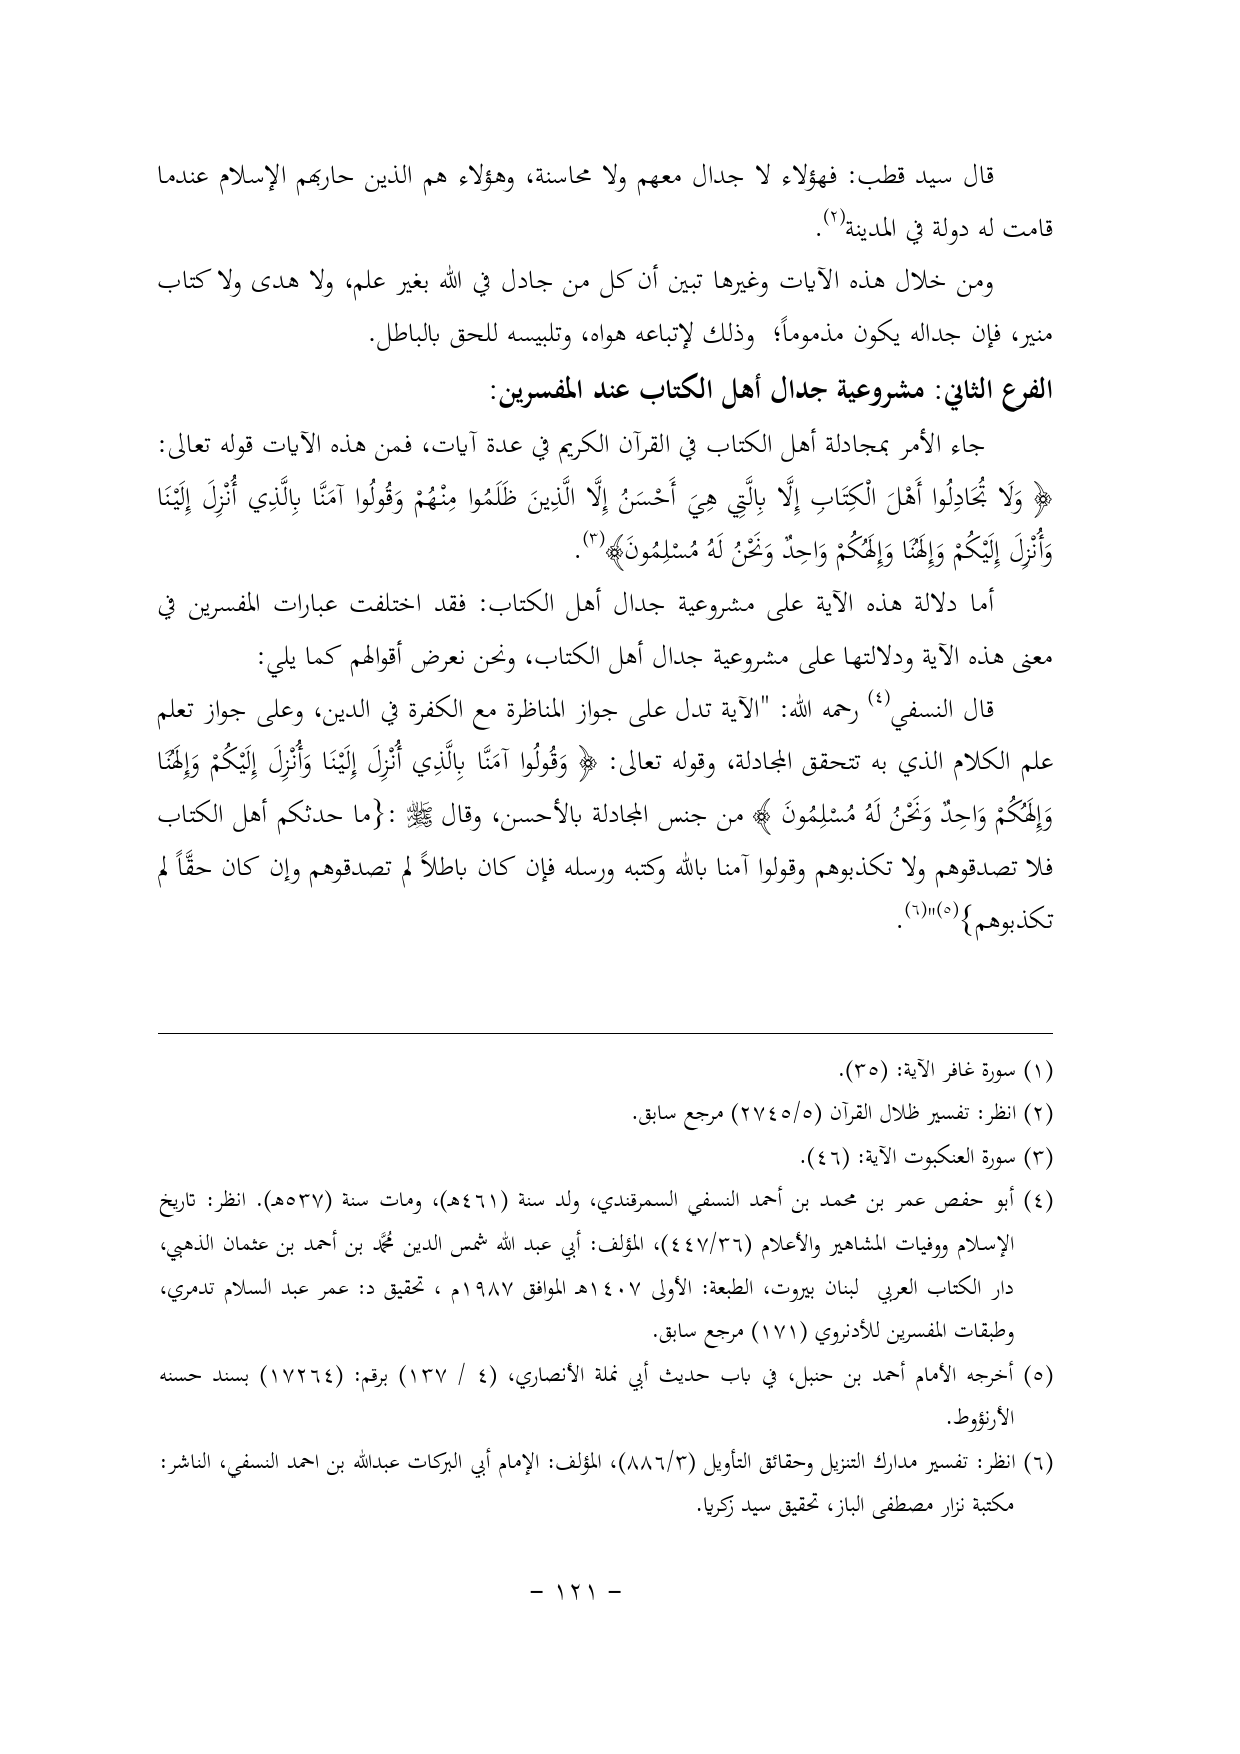 قال سيد قطب: فهؤلاء لا جدال معهم ولا محاسنة، وهؤلاء هم الذين حاربهم الإسلام عندما
قامت له دولة في المدينة(٢).
ومن خلال هذه الآيات وغيرها تبين أن كل من جادل في الله بغير علم، ولا هدى ولا كتاب
منير، فإن جداله يكون مذموماً؛ وذلك لإتباعه هواه، وتلبيسه للحق بالباطل.
الفرع الثاني: مشروعية جدال أهل الكتاب عند المفسرين:
جاء الأمر بمجادلة أهل الكتاب في القرآن الكريم في عدة آيات، فمن هذه الآيات قوله تعالى:
﴿ وَلَا تُجَادِلُوا أَهْلَ الْكِتَابِ إِلَّا بِالَّتِي هِيَ أَحْسَنُ إِلَّا الَّذِينَ ظَلَمُوا مِنْهُمْ وَقُولُوا آمَنَّا بِالَّذِي أُنْزِلَ إِلَيْنَا
وَأُنْزِلَ إِلَيْكُمْ وَإِلَهُنَا وَإِلَهُكُمْ وَاحِدٌ وَنَحْنُ لَهُ مُسْلِمُونَ﴾(٣).
أما دلالة هذه الآية على مشروعية جدال أهل الكتاب: فقد اختلفت عبارات المفسرين في
معنى هذه الآية ودلالتها على مشروعية جدال أهل الكتاب، ونحن نعرض أقوالهم كما يلي:
قال النسفي(٤) رحمه الله: "الآية تدل على جواز المناظرة مع الكفرة في الدين، وعلى جواز تعلم
علم الكلام الذي به تتحقق المجادلة، وقوله تعالى: ﴿ وَقُولُوا آمَنَّا بِالَّذِي أُنْزِلَ إِلَيْنَا وَأُنْزِلَ إِلَيْكُمْ وَإِلَهُنَا
وَإِلَهُكُمْ وَاحِدٌ وَنَحْنُ لَهُ مُسْلِمُونَ ﴾ من جنس المجادلة بالأحسن، وقال ﷺ :{ما حدثكم أهل الكتاب
فلا تصدقوهم ولا تكذبوهم وقولوا آمنا بالله وكتبه ورسله فإن كان باطلاً لم تصدقوهم وإن كان حقَّاً لم
تكذبوهم}(٥)"(٦).
(١) سورة غافر الآية: (٣٥).
(٢) انظر: تفسير ظلال القرآن (٢٧٤٥/٥) مرجع سابق.
(٣) سورة العنكبوت الآية: (٤٦).
(٤) أبو حفص عمر بن محمد بن أحمد النسفي السمرقندي، ولد سنة (٤٦١هـ)، ومات سنة (٥٣٧هـ). انظر: تاريخ
الإسلام ووفيات المشاهير والأعلام (٤٤٧/٣٦)، المؤلف: أبي عبد الله شمس الدين محمَّد بن أحمد بن عثمان الذهبي،
دار الكتاب العربي لبنان بيروت، الطبعة: الأولى ١٤٠٧هـ الموافق ١٩٨٧م ، تحقيق د: عمر عبد السلام تدمري،
وطبقات المفسرين للأدنروي (١٧١) مرجع سابق.
(٥) أخرجه الأمام أحمد بن حنبل، في باب حديث أبي نملة الأنصاري، (٤ / ١٣٧) برقم: (١٧٢٦٤) بسند حسنه
الأرنؤوط.
(٦) انظر: تفسير مدارك التنزيل وحقائق التأويل (٨٨٦/٣)، المؤلف: الإمام أبي البركات عبدالله بن احمد النسفي، الناشر:
مكتبة نزار مصطفى الباز، تحقيق سيد زكريا.
- ١٢١ -